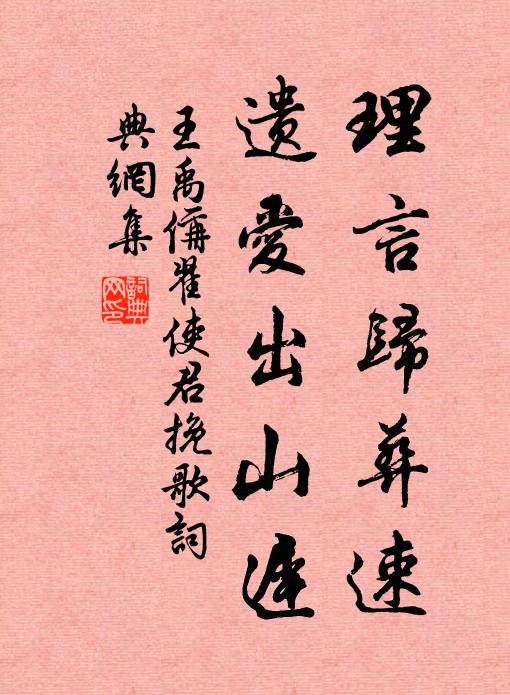 理言歸葬速
遺愛出山遲
王禹偁翟使君挽歌詞
典網集
詞典網印